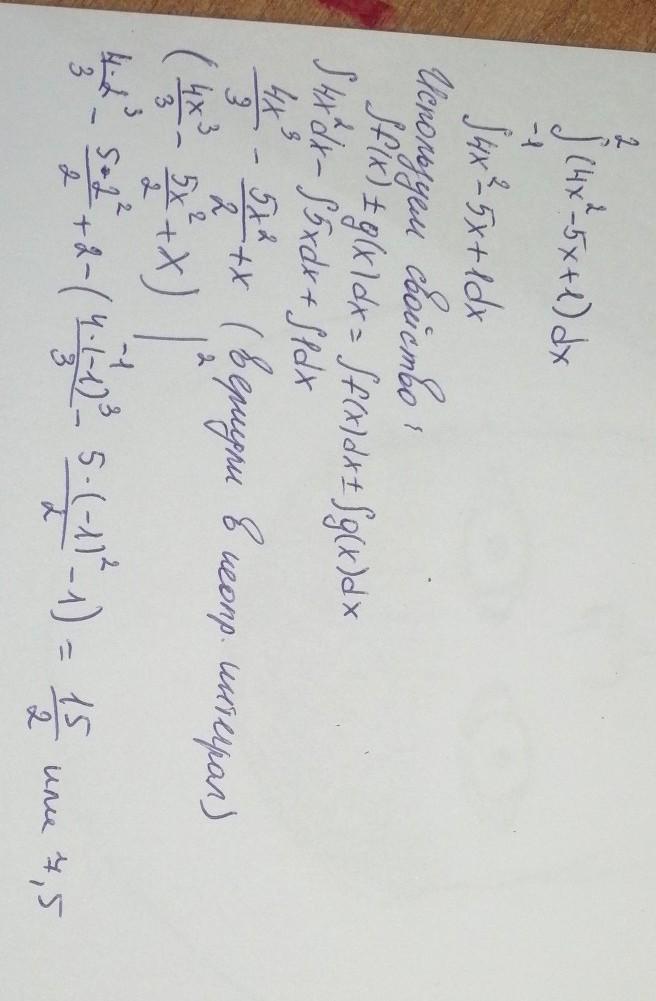 ∫₋₁² (4x² - 5x + 1) dx
∫ 4x² - 5x + 1 dx
Используем свойство:
∫ f(x) ± g(x) dx = ∫ f(x) dx ± ∫ g(x) dx
∫ 4x² dx - ∫ 5x dx + ∫ 1 dx
4x³/3 - 5x²/2 + x (вернули в неопр. интеграл)
(4x³/3 - 5x²/2 + x) |₋₁²
4·2³/3 - 5·2²/2 + 2 - (4·(-1)³/3 - 5·(-1)²/2 - 1) = 15/2 или 7,5